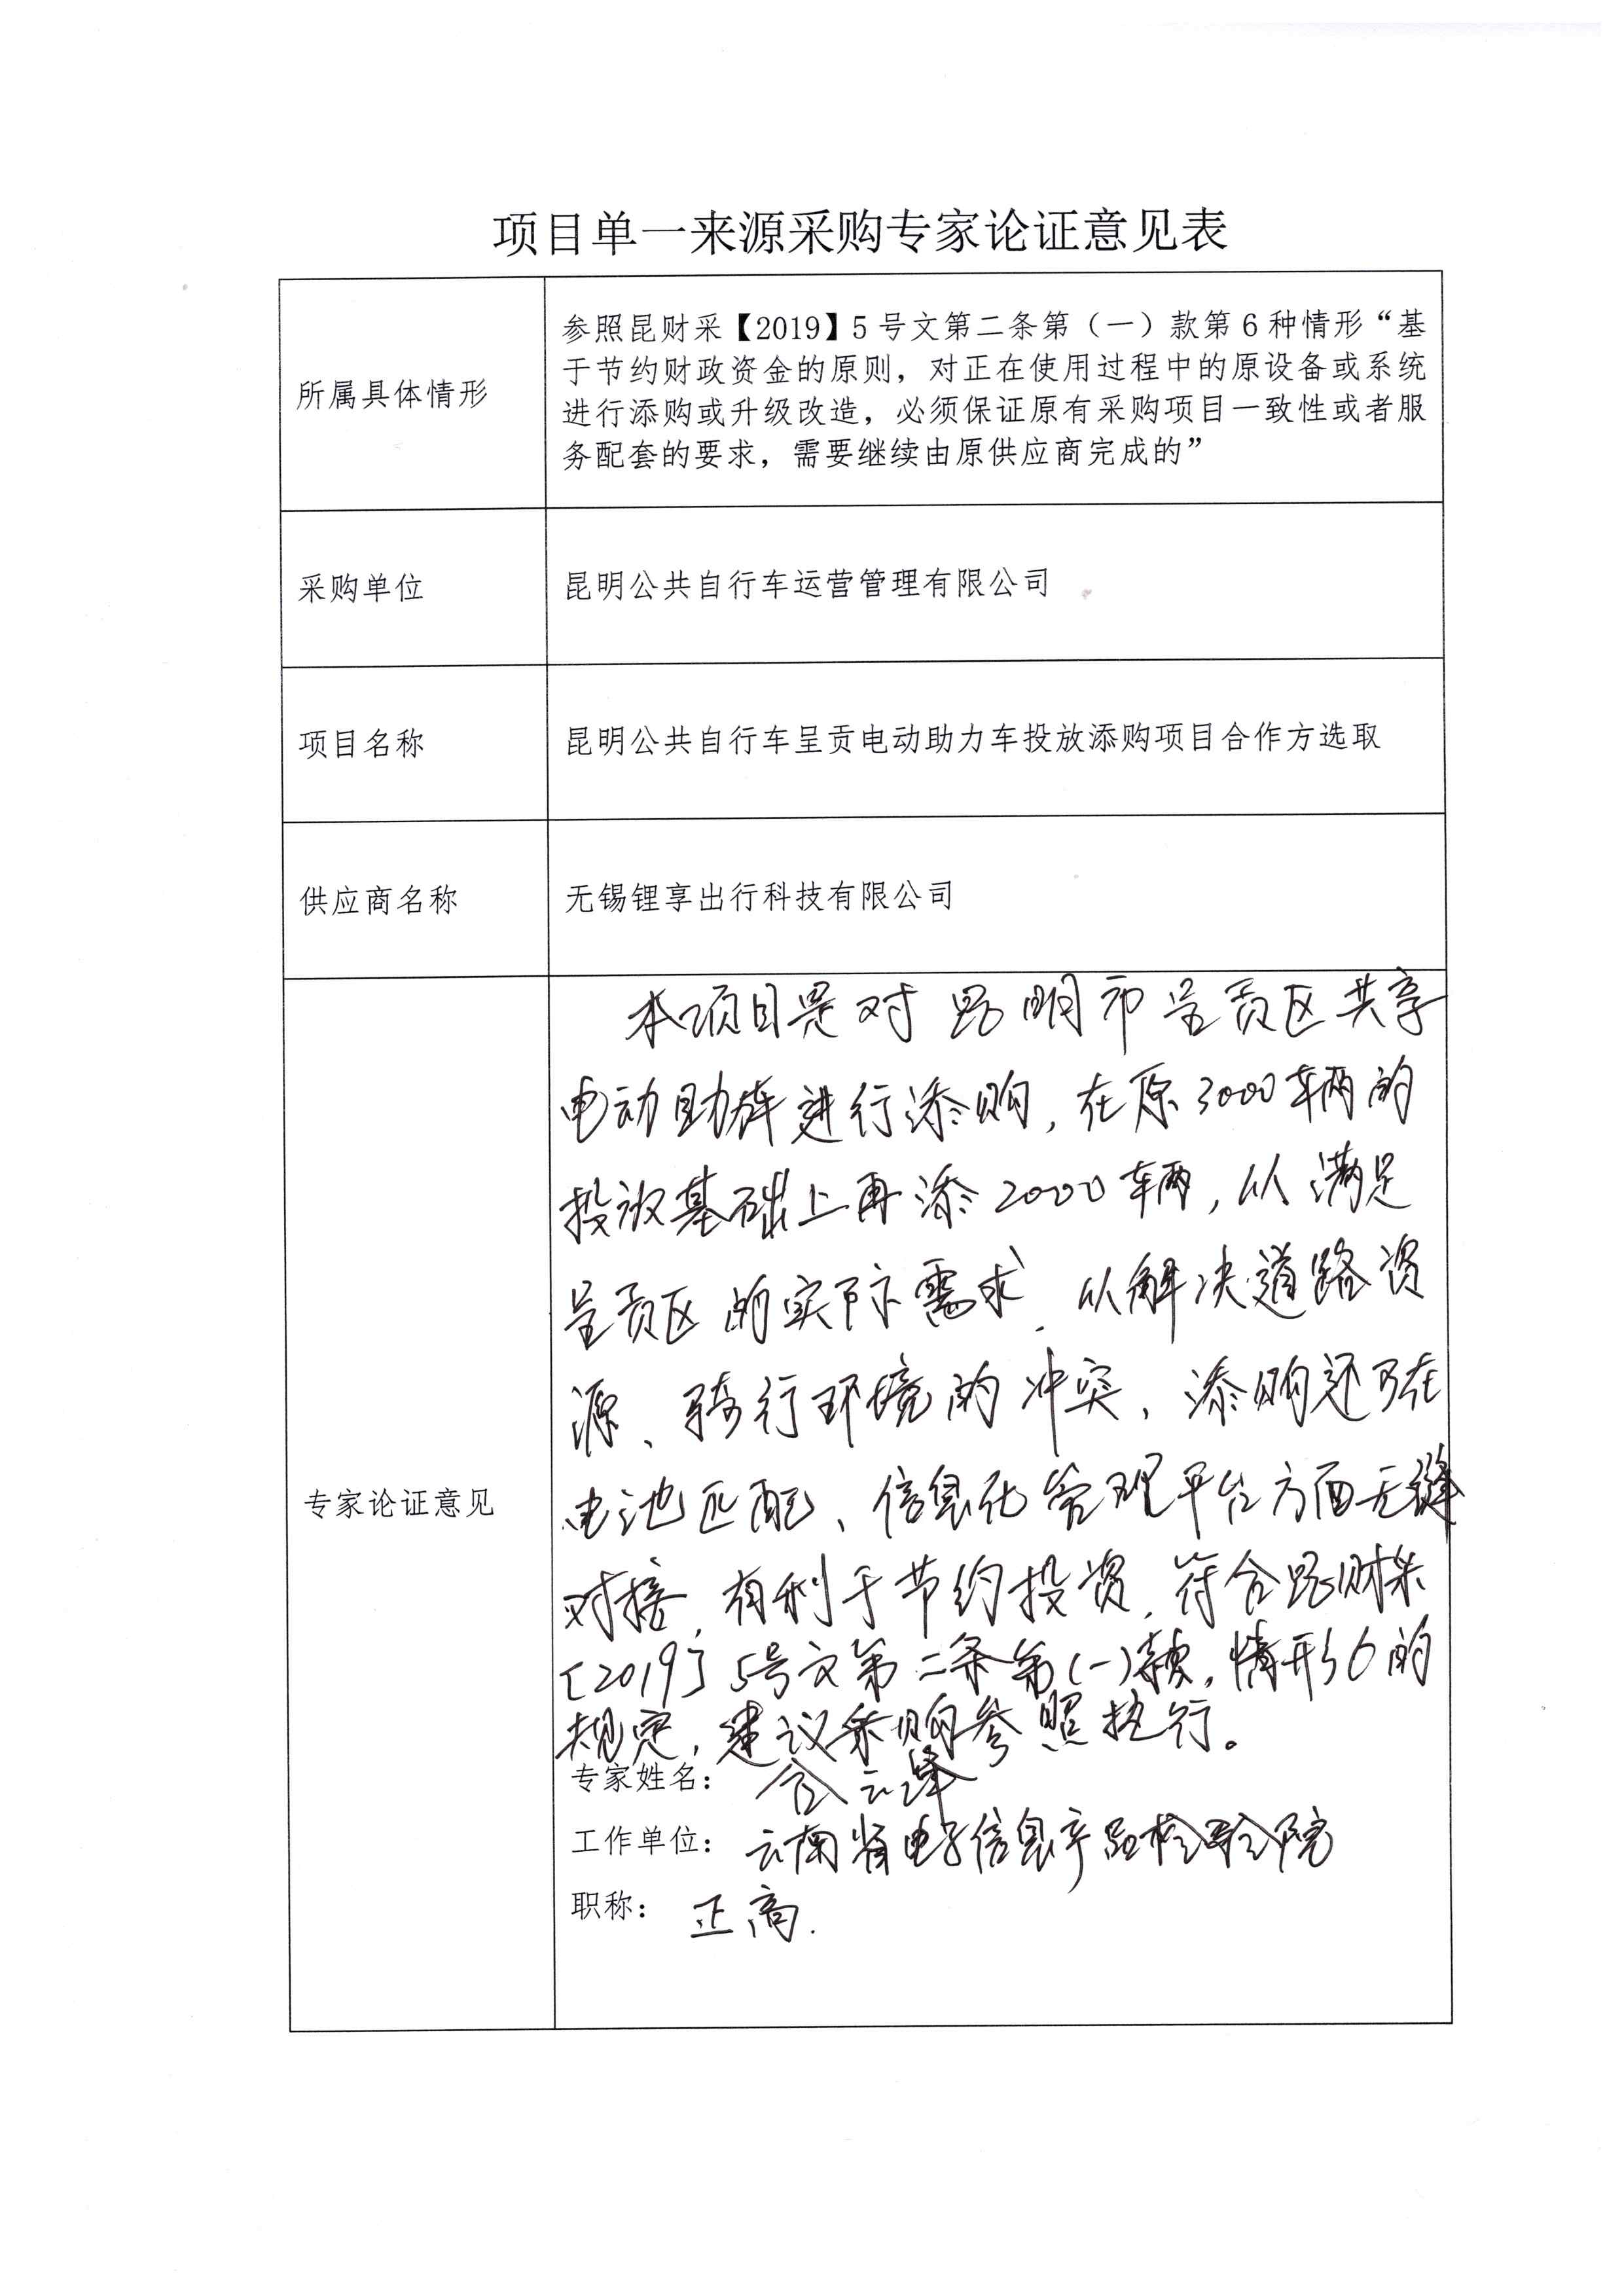 项目单一来源采购专家论证意见表
所属具体情形
参照昆财采【2019】5号文第二条第（一）款第6种情形“基
于节约财政资金的原则，对正在使用过程中的原设备或系统
进行添购或升级改造，必须保证原有采购项目一致性或者服
务配套的要求，需要继续由原供应商完成的”
采购单位
昆明公共自行车运营管理有限公司
项目名称
昆明公共自行车呈贡电动助力车投放添购项目合作方选取
供应商名称
无锡锂享出行科技有限公司
专家论证意见
本项目是对昆明市呈贡区共享
电动助力车进行添购，在原3000车辆的
投放基础上再添2000车辆，以满足
呈贡区的实际需求，以解决道路资
源、骑行环境的冲突，添购还可在
电池匹配、信息化管理平台方面无缝
对接，有利于节约投资，符合昆财采
〔2019〕5号文第二条第(一)款，情形6的
规定，建议采购参照执行。
专家姓名：
工作单位：云南省电子信息产品检验院
职称：正高.